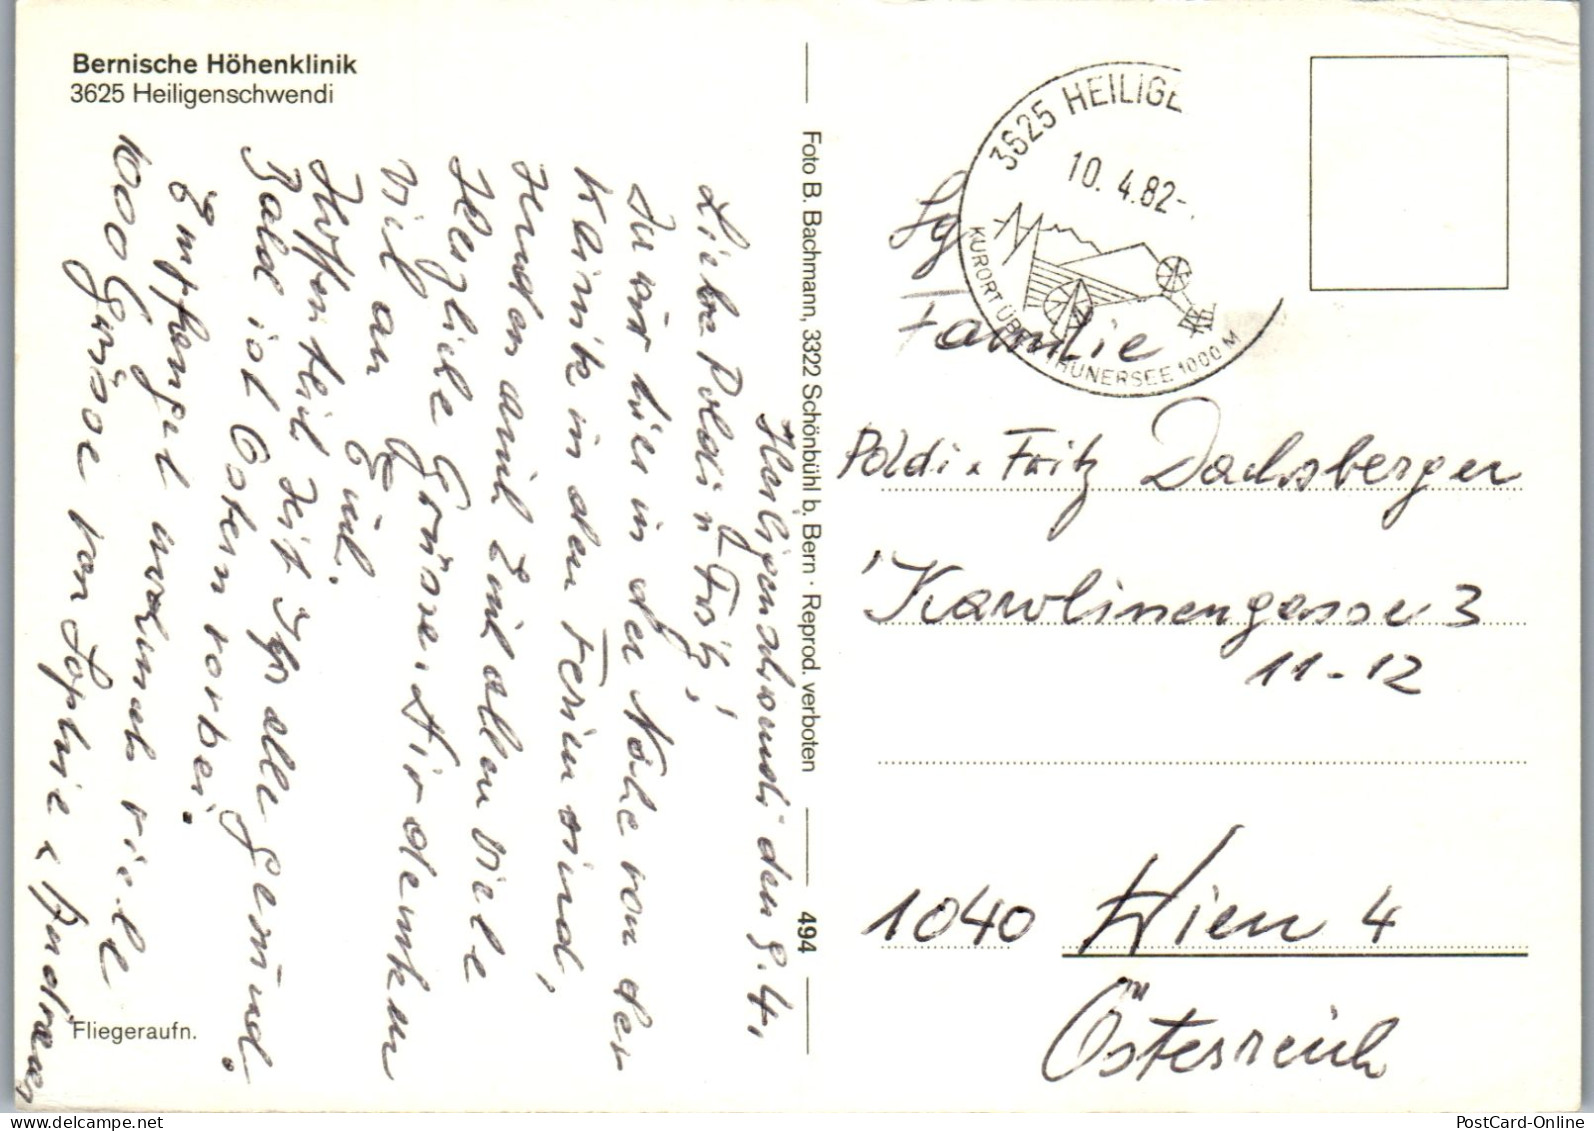 Bernische Höhenklinik
3625 Heiligenschwendi
Heiligenschwendi den 9.4.
Liebe Poldi u Fritz!
Da wir hier in der Nähe von der
Klinik in den Ferien sind,
senden und Emil allen viele
Herzliche Grüsse. Wir denken
viel an Euch.
Hoffentlich seit Ihr alle gesund.
Bald ist Ostern vorbei.
Empfenget nochmals viele
1000 Grüsse von Sophie &
Fliegeraufn.
Foto B. Bachmann, 3322 Schönbühl b. Bern · Reprod. verboten
494
3625 HEILIGE
10. 4.82-
KURORT ÜBER THUNERSEE 1000 M
Familie
Poldi & Fritz Dachsberger
Karolinengasse 3
11-12
1040 Wien 4
Österreich
PostCard-Online